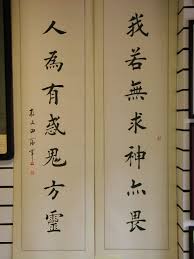 我若無求神亦畏
人為有惑鬼方靈